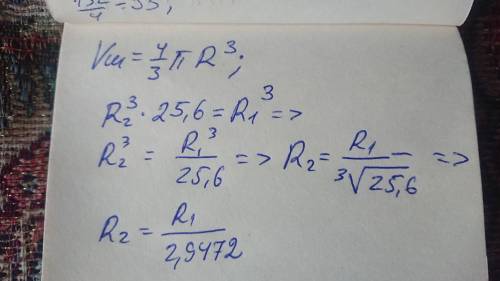 132/4 = 33;
Vш = 4/3 π R³;
R₂³ · 25,6 = R₁³ =>
R₂³ = R₁³/25,6 => R₂ = R₁/³√25,6 =>
R₂ = R₁/2,9472